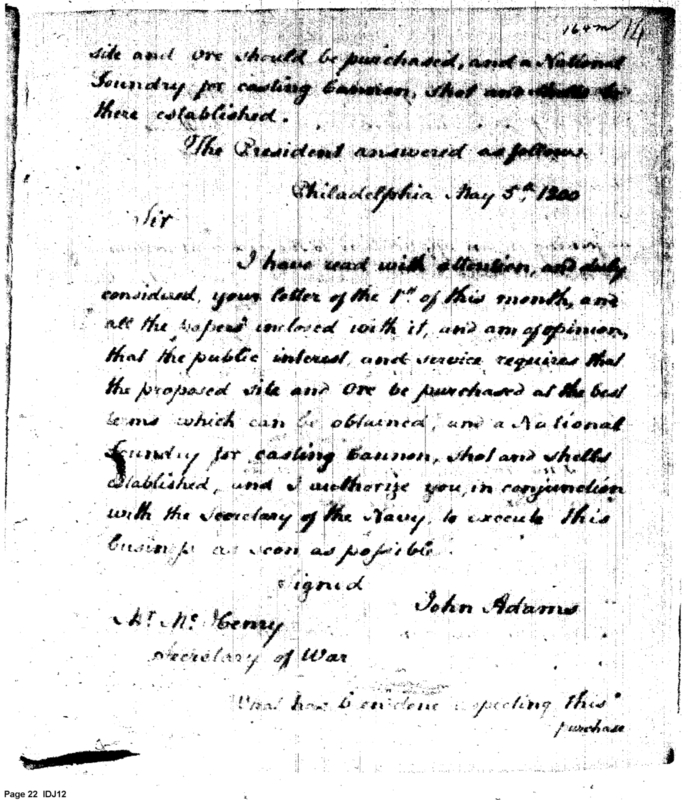 164m 14
site and Ore should be purchased, and a National
Foundry for casting Cannon, Shot and Shells be
there established.
The President answered as follows.
Philadelphia May 5th 1800
Sir
I have read with attention, and duly
considered, your letter of the 1st of this month, and
all the papers inclosed with it, and am of opinion,
that the public interest, and service requires that
the proposed site and Ore be purchased at the best
terms which can be obtained, and a National
Foundry for casting Cannon, Shot and Shells
established, and I authorize you, in conjunction
with the Secretary of the Navy, to execute this
business as soon as possible.
Signed
John Adams
Mr. Mc. Henry
Secretary of War
What has been done respecting this
purchase
Page 22 IDJ12